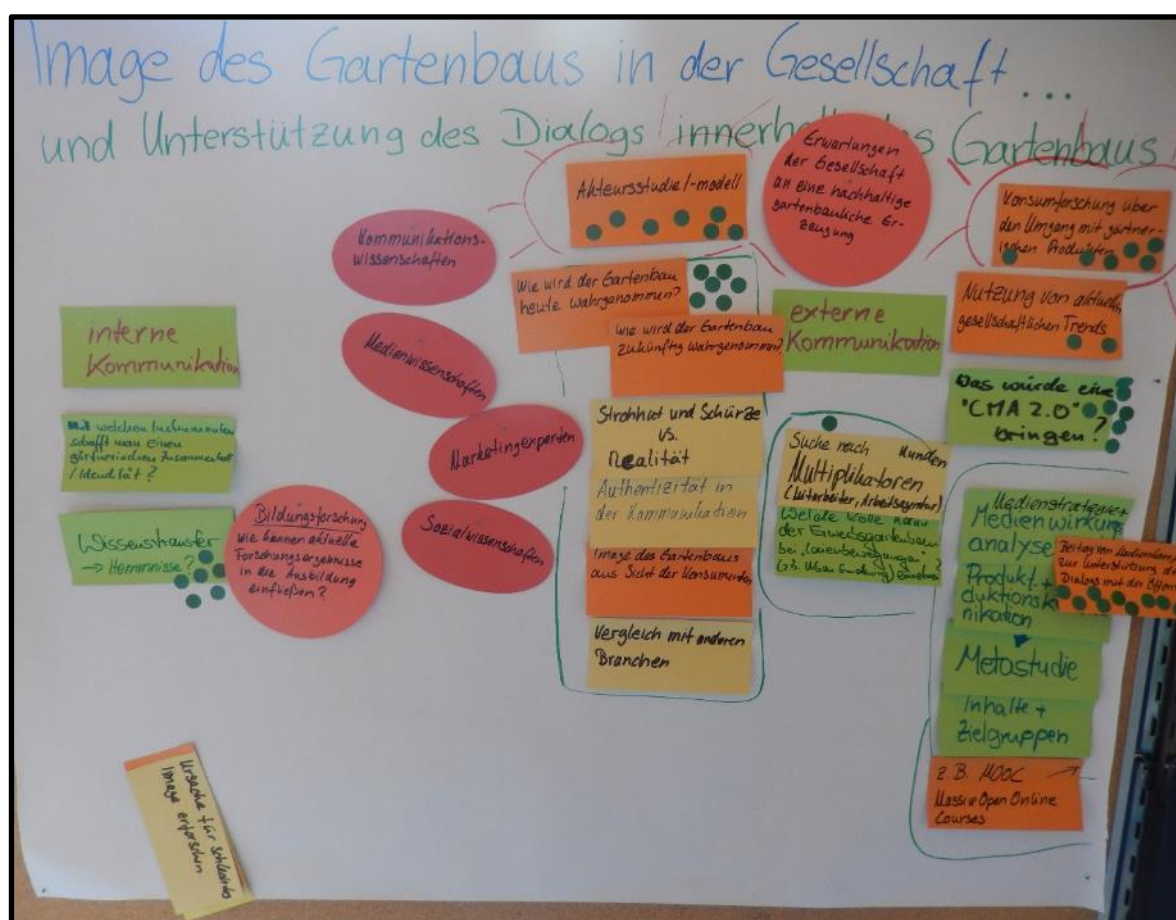 Image des Gartenbaus in der Gesellschaft...
und Unterstützung des Dialogs innerhalb des Gartenbaus
interne
Kommunikation
welchen Instrumenten
schafft man einen
gärtnerischen Zusammenhalt
/ Identität?
Wissenstransfer
→ Hemmnisse?
Bildungsforschung
wie können aktuelle
Forschungsergebnisse
in die Ausbildung
einfließen?
Kommunikations-
wissenschaften
Medienwissenschaften
Marketingexperten
Sozialwissenschaften
Akteursstudie/-modell
Wie wird der Gartenbau
heute wahrgenommen?
Wie wird der Gartenbau
zukünftig wahrgenommen?
Strohhut und Schürze
vs.
Realität
Authentizität in
der Kommunikation
Image des Gartenbaus
aus Sicht der Konsumenten
Vergleich mit anderen
Branchen
Erwartungen
der Gesellschaft
an eine nachhaltige
gartenbauliche Er-
zeugung
externe
Kommunikation
Suche nach Kunden
Multiplikatoren
(Mitarbeiter, Arbeitsagentur)
Welche Rolle kann
der Erwerbsgartenbau
bei "Laienbewegungen"
(z.b. Urban Gardening) einnehmen?
Konsumforschung über
den Umgang mit gärtner-
ischen Produkten
Nutzung von aktuellen
gesellschaftlichen Trends
Das würde eine
"CMA 2.0"
bringen?
Medienstrategie+
Medienwirkung
analyse
Beitrag von
zur Unterstützung de
Dialogs mit der Öffen
Produkt +
duktionsk
nikation
Metastudie
Inhalte +
Zielgruppen
z.B. MOOC
Massiv Open Online
Courses
Ursache für schlechtes
Image erforschen